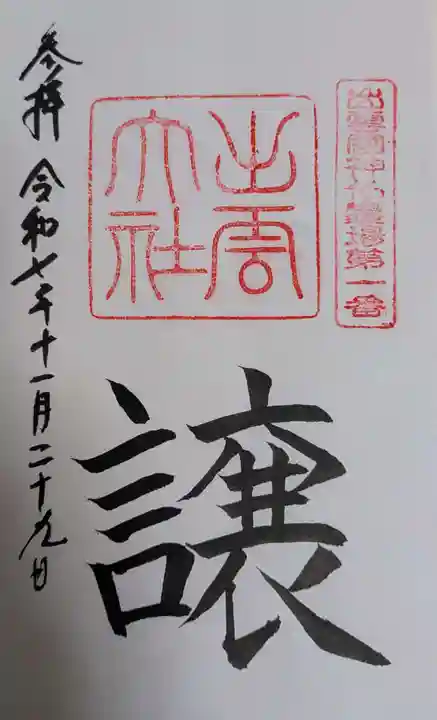 出雲國神仏霊場第一番
出雲
大社
譲
参拝 令和七年十一月二十九日